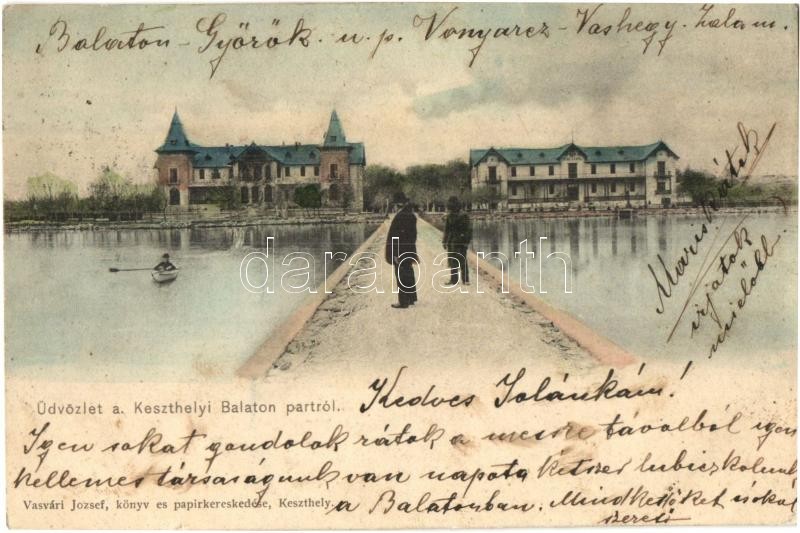 Balaton-Györök. u. p. Vonyarcz-Vashegy. Zalam.
Mariskátok
irjatok
mielőbb.
darabanth
Üdvözlet a. Keszthelyi Balaton partról.
Kedves Jolánkám!
Igen sokat gondolok rátok a messze távolból igen
kellemes társaságunk van napota kétszer lubiczkolunk
a Balatonban. Mindkettőket sokat
Vasvári Jozsef, könyv es papirkereskedése, Keszthely.